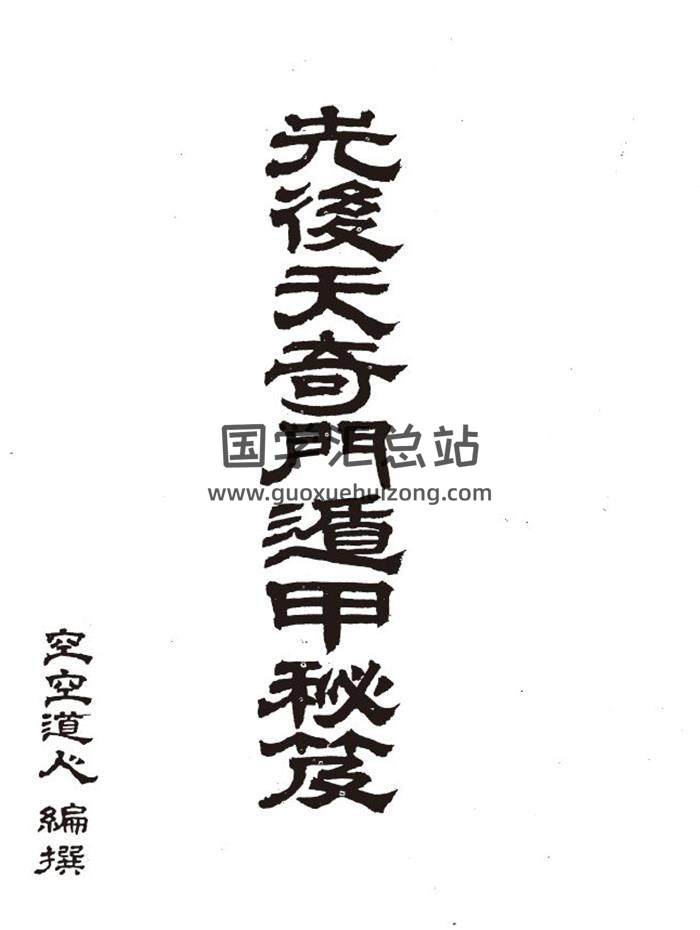 先後天奇門遁甲秘笈
空空道人 編撰
国学汇总站
www.guoxuehuizong.com